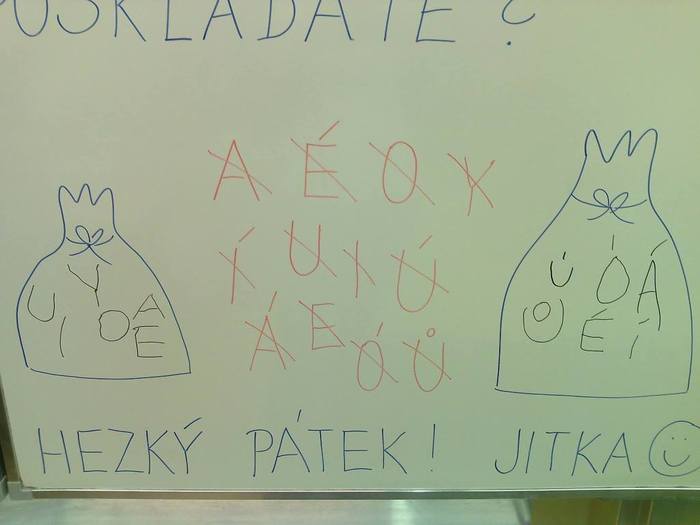 POSKLÁDÁTE ?
A É O Y
Í U I Ú
Á E Ó Ů
Y
U O A
I E
Ú Ó Á
Ů É Í
HEZKÝ PÁTEK! JITKA